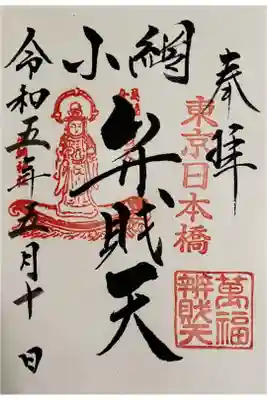 奉拝
東京日本橋
萬福
辨財天
小網
弁財天
令和五年五月十日